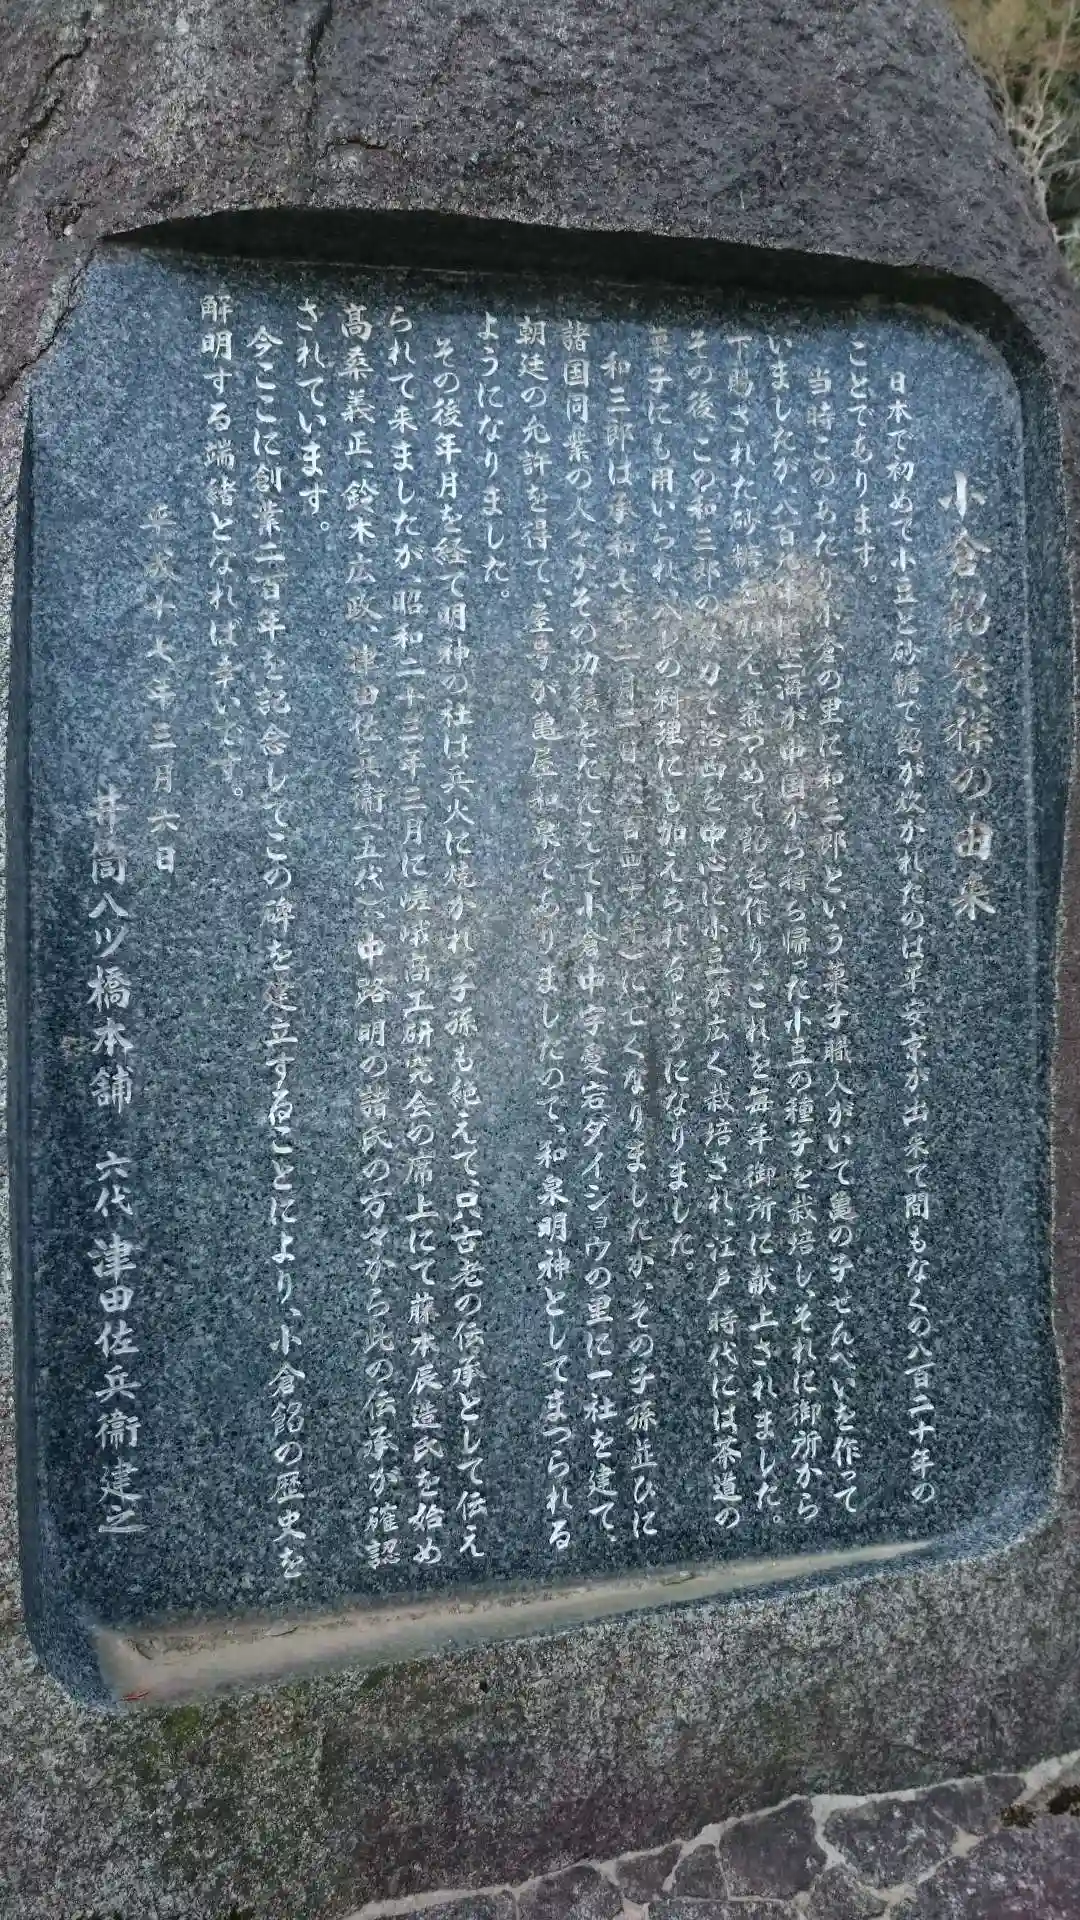 小倉餡発祥の由来
日本で初めて小豆と砂糖で餡が炊かれたのは平安京が出来て間もなくの八百二十年の
ことであります。
当時このあたり小倉の里に和三郎という菓子職人がいて亀の子せんべいを作って
いましたが、八百九年に空海が中国から持ち帰った小豆の種子を栽培し、それに御所から
下賜された砂糖を加え、煮つめて餡を作り、これを毎年御所に献上されました。
その後この和三郎の努力で洛西を中心に小豆が広く栽培され、江戸時代には茶道の
菓子にも用いられ、ハレの料理にも加えられるようになりました。
和三郎は承和七年二月三日(八百四十年)にてくなりましたが、その子孫並ひに
諸国同業の人々がその功績をたたえて小倉中字愛宕ダイショウの里に一社を建て、
朝廷の允許を得て、屋号が亀屋和泉でありましたので、和泉明神としてまつられる
ようになりました。
その後年月を経て明神の社は兵火に焼かれ、子孫も絶えて、只古老の伝承として伝え
られて来ましたが、昭和二十三年三月に嵯峨商工研究会の席上にて藤本辰造氏を始め
髙桑義正、鈴木広政、津田佐兵衞(五代)、中路明の諸氏の方々から此の伝承が確認
されています。
今ここに創業二百年を記念してこの碑を建立することにより、小倉餡の歴史を
解明する端緒となれば幸いです。
平成十七年三月六日
井筒八ツ橋本舗 六代 津田佐兵衞建之